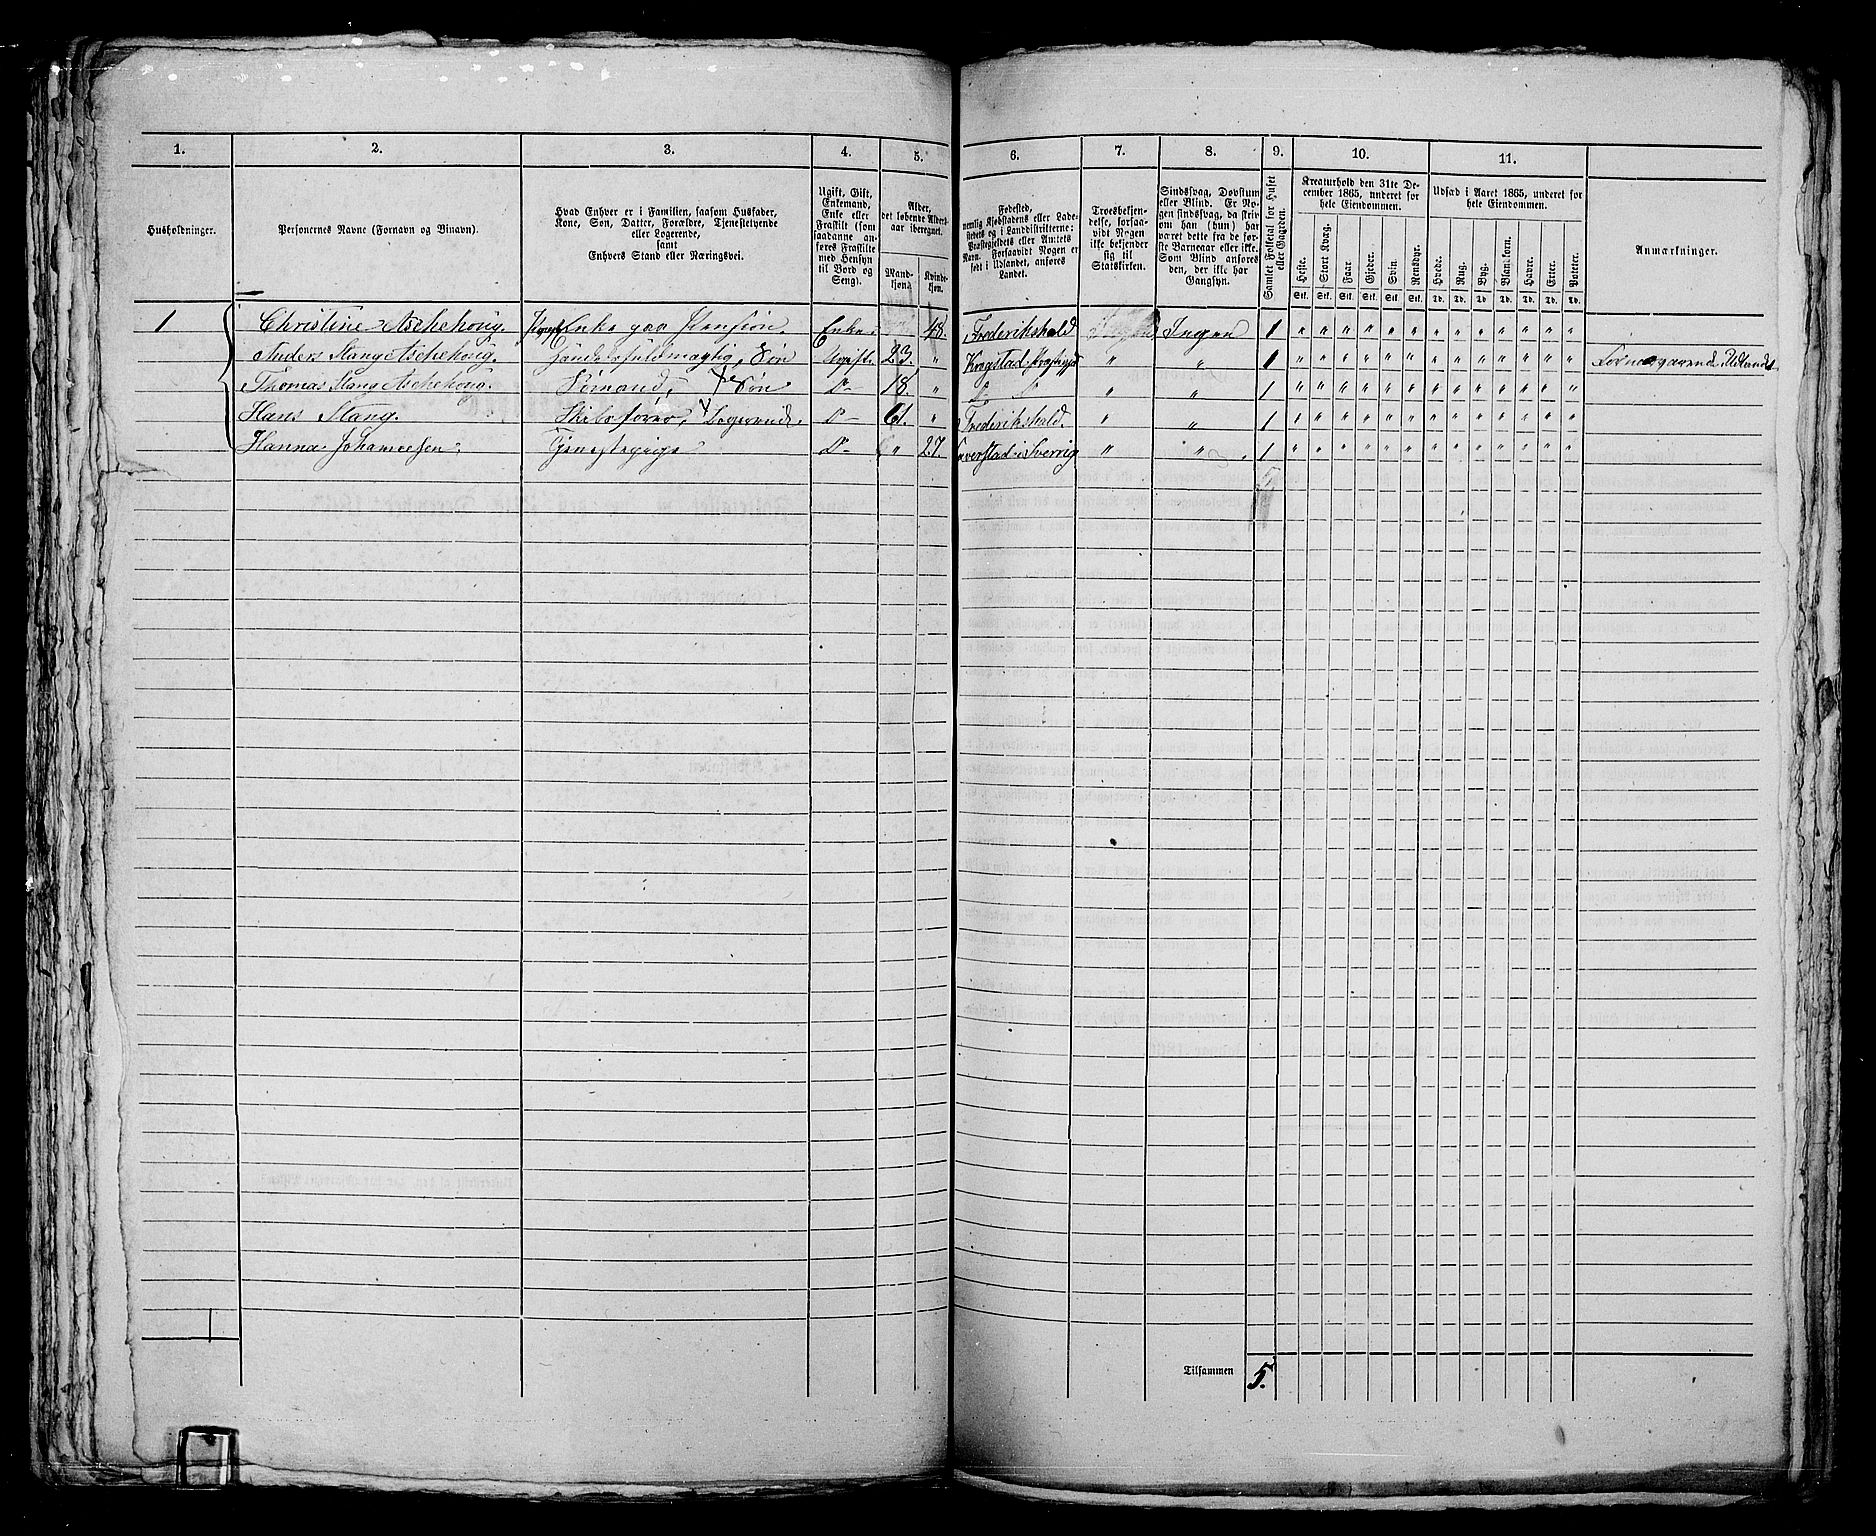 1. 2. 3. 4. 5. 6. 7. 8. 9. 10. 11.
Husholdninger.
Personernes Navne (Fornavn og Vinavn).
Hvad Enhver er i Familien, saasom Husfader,
Kone, Søn, Datter, Forældre, Tjenestetyende
eller Logerende,
samt
Enhvers Stand eller Næringsvei.
Ugift, Gift,
Enkemand,
Enke eller
Fraskilt (som
saadanne an-
føres Fraskilte
med Hensyn
til Bord og
Seng).
Alder,
det løbende Alders-
aar iberegnet.
Mand-
kjøn.
Kvinde-
kjøn.
Fødested,
nemlig Kjøbstadens eller Lade-
stedets og i Landdistrikterne:
Præstegjeldets eller Amtets
Navn. Forsaavidt Nogen er
født i Udlandet, anføres
Landet.
Troesbekjen-
delse, forsaa-
vidt Nogen
ikke bekjender
sig til
Statskirken.
Sindssvag, Døvstum
eller Blind. Er No-
gen sindssvag, da skriv
om han (hun) har
været dette fra de før-
ste Barneaar eller ikke.
Som Blind anføres
den, der ikke har
Gangsyn.
Samlet Folketal for Huset
eller Gaarden.
Kreaturhold den 31te De-
cember 1865, underet for
hele Eiendommen.
Heste. Stort Kvæg. Faar. Gjeder. Svin. Rensdyr.
Stk. Stk. Stk. Stk. Stk. Stk.
Udsæd i Aaret 1865, underet for
hele Eiendommen.
Hvede. Rug. Byg. Blandkorn. Havre. Erter. Poteter.
Td. Td. Td. Td. Td. Td. Td.
Anmærkninger.
1 Christine Aschehoug. Enke paa Pension. Enke 48. Frederikshald Ingen 1 " " " " " " " " " " " " "
Anders Stang Aschehoug. Handelsfuldmægtig, Søn Ugift. 23. " Kragstad Præstegjd " " 1 " " " " " " " " " " " " " Fornærværende Udlands
Thomas Stang Aschehoug. Sømand, Søn D- 18. " D. D. " " 1 " " " " " " " " " " " " "
Hans Stang. Skibsfører, Logerende. D- 61. " Frederikshald. " " 1 " " " " " " " " " " " " "
Hanna Johannesen. Tjenestepige D- " 27. i Sverrig " " 1 " " " " " " " " " " " " "
Tilsammen 5.